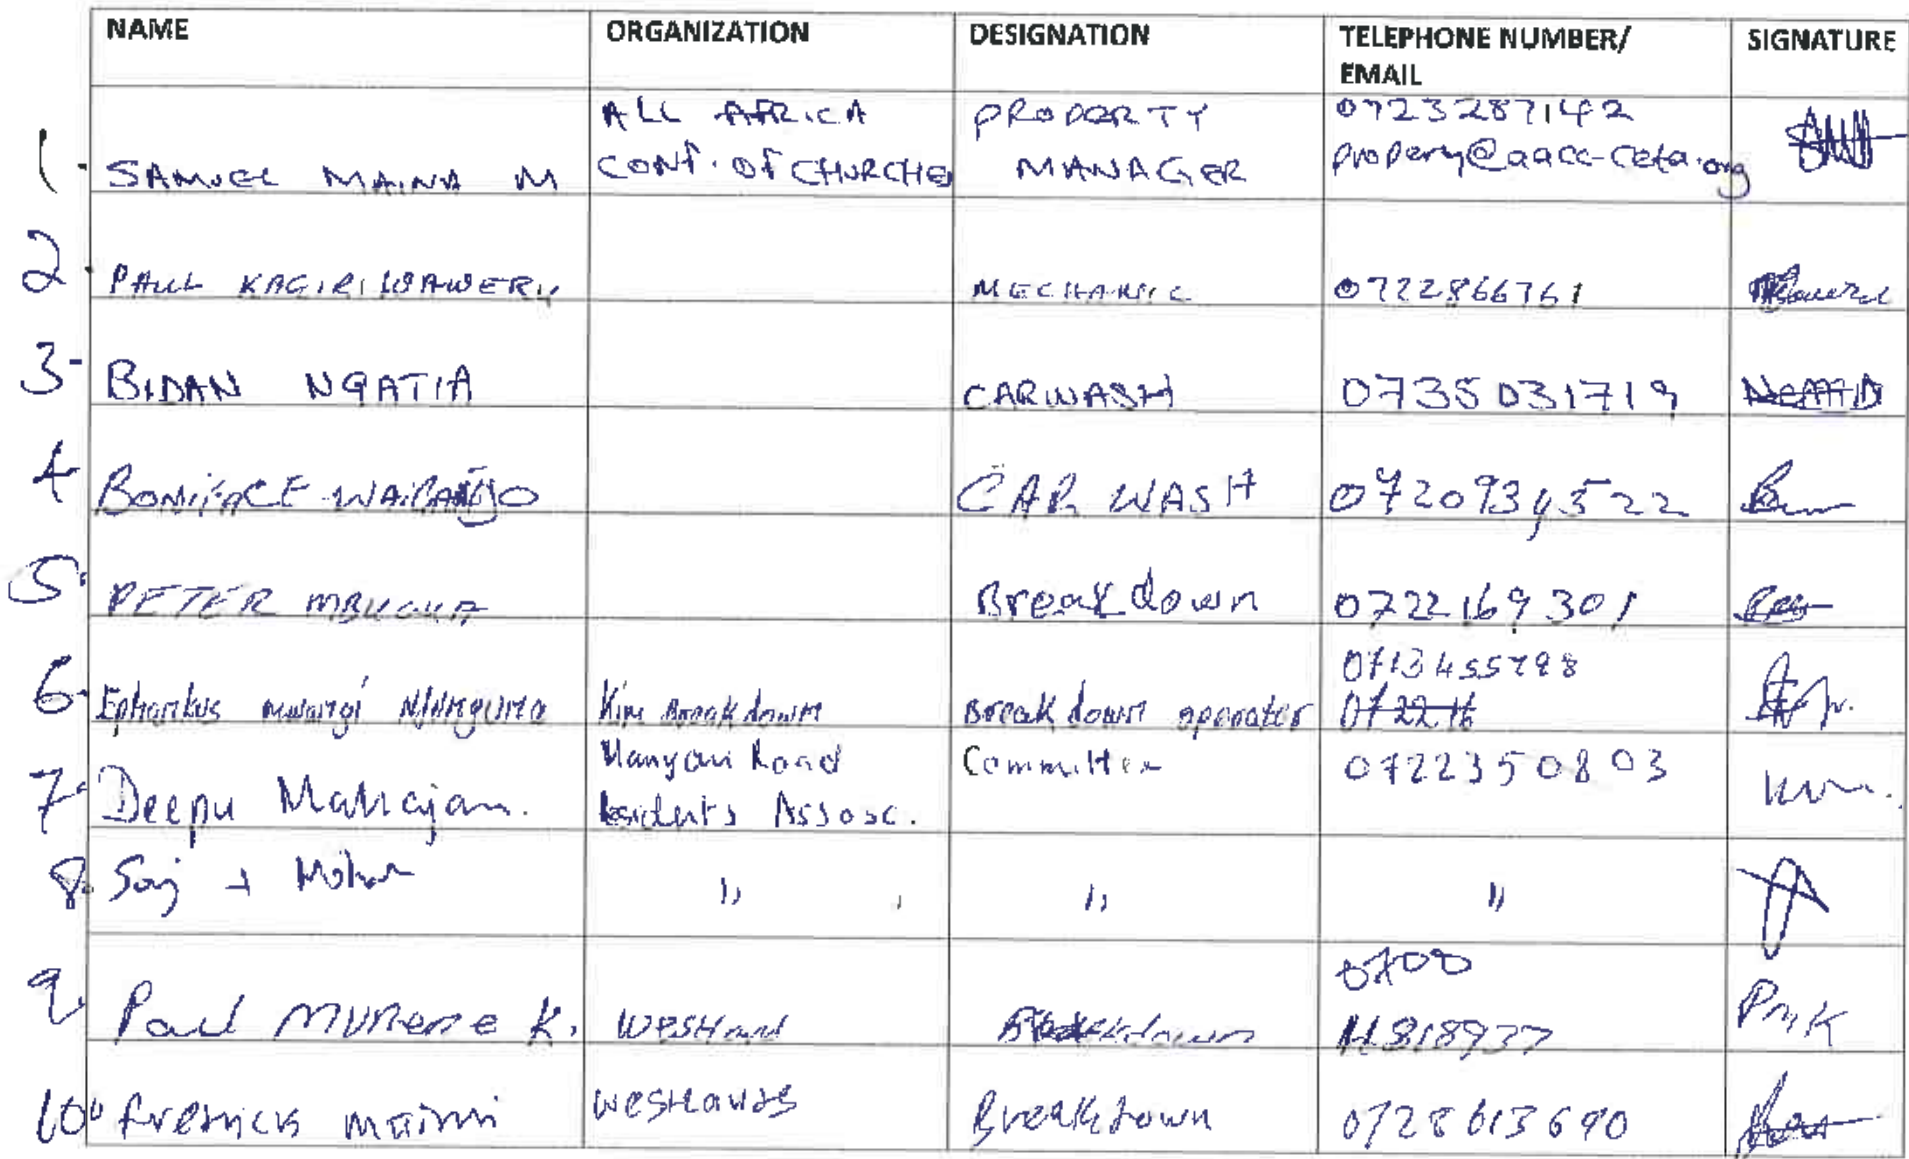 NAME ORGANIZATION DESIGNATION TELEPHONE NUMBER/ EMAIL SIGNATURE
1. SAMUEL MAINA M ALL AFRICA CONF. OF CHURCHES PROPERTY MANAGER 0723287142 property@aacc-ceta.org
2. PAUL KAGIRI WAWERU MECHANIC 0722866761
3- BIDAN NGATIA CARWASH 0735031719
4 BONIFACE CAR WASH 0720934522
5. PETER MBUGUA Breakdown 0722169301
6. mwangi Breakdown Break down operator 0713455798 0722 16
7. Deepu Mahajan. Manyani Road Residents Assosc. Committee 0722350803
8. " " "
9. Paul K. Westland Breakdown 0700 PMK
10" maimi westlands Breakdown 0728613690